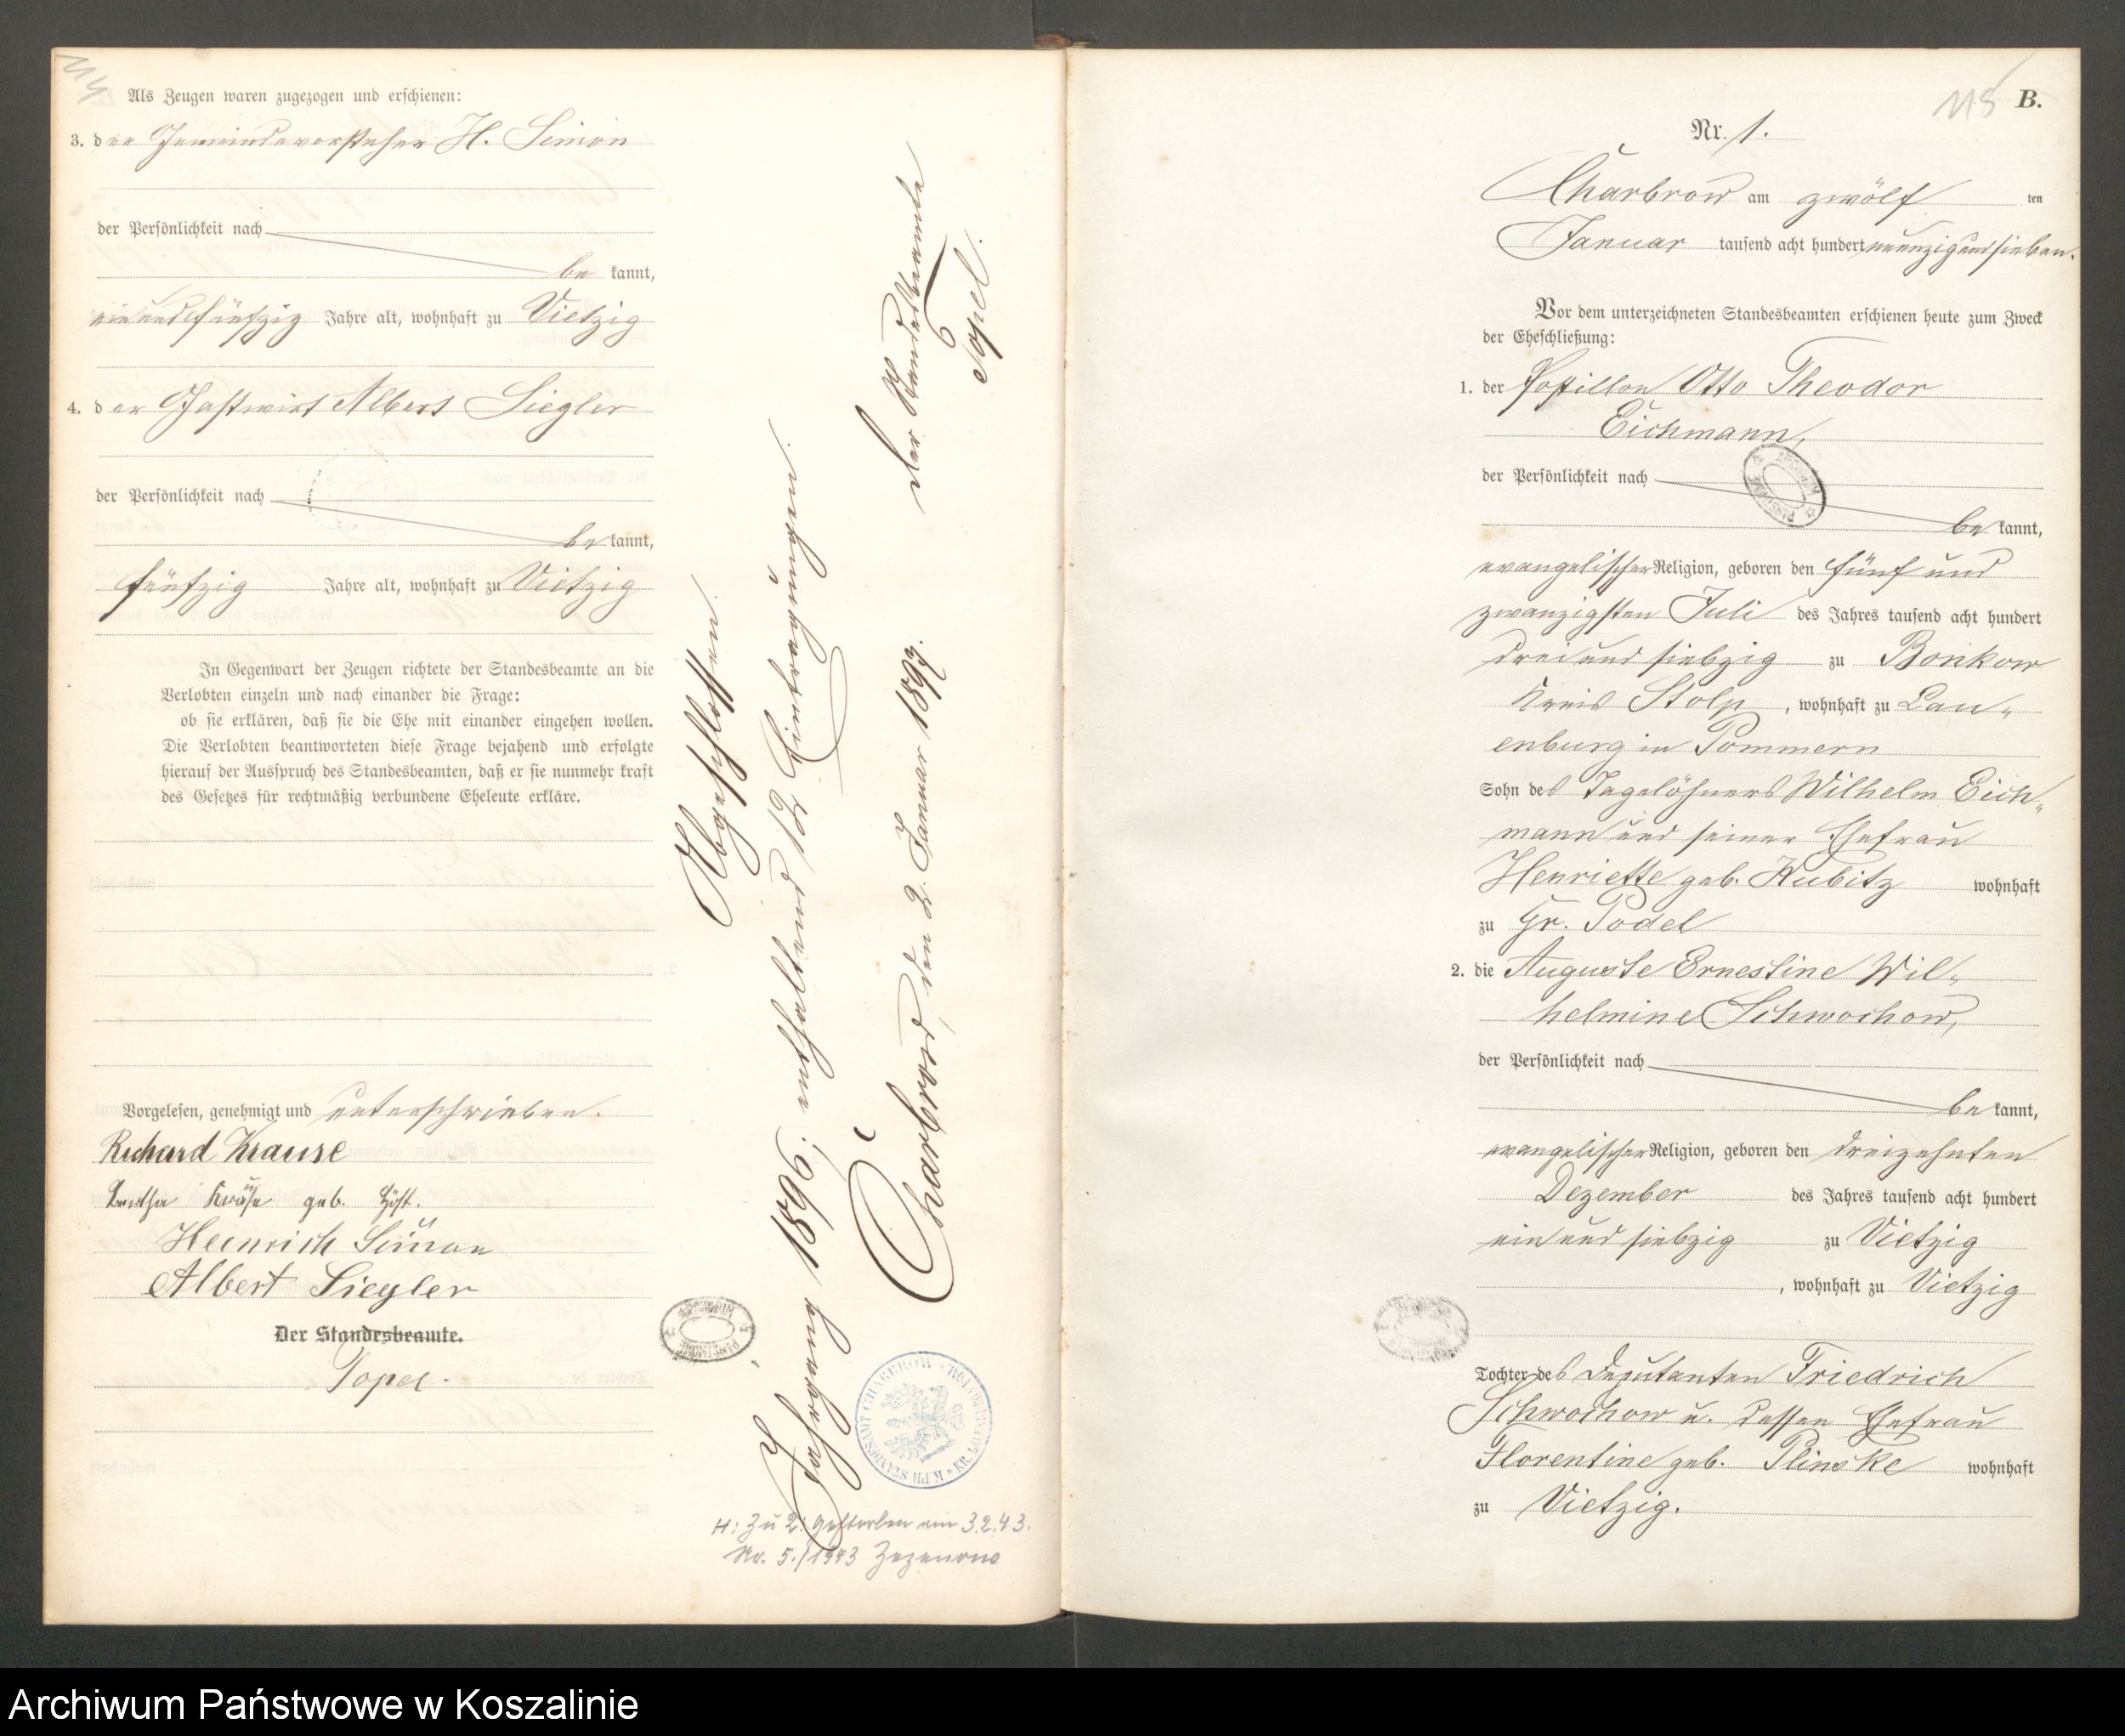 114
Als Zeugen waren zugezogen und erschienen:
3. der Gemeindevorsteher H. Simon
der Persönlichkeit nach
be kannt,
einundfünfzig Jahre alt, wohnhaft zu Vietzig
4. der Gastwirt Albert Siegler
der Persönlichkeit nach
be kannt,
fünfzig Jahre alt, wohnhaft zu Vietzig
In Gegenwart der Zeugen richtete der Standesbeamte an die
Verlobten einzeln und nach einander die Frage:
ob sie erklären, daß sie die Ehe mit einander eingehen wollen.
Die Verlobten beantworteten diese Frage bejahend und erfolgte
hierauf der Ausspruch des Standesbeamten, daß er sie nunmehr kraft
des Gesetzes für rechtmäßig verbundene Eheleute erkläre.
Vorgelesen, genehmigt und unterschrieben.
Richard Krause
Bertha Krause geb.
Heinrich Simon
Albert Siegler
Der Standesbeamte.
Topel.
Abgeschlossen.
Jahrgang 1896; enthaltend 12 Eintragungen.
Charbrow, den 2. Januar 1897.
Der Standesbeamte
Topel.
K. PR. STANDESAMT CHARBROW * KR. LAUENBURG I. POM.
H: Zu 2: gestorben am 3.2.43.
No. 5./1943 Zezenow
115
B.
Nr. 1.
Charbrow am zwölf ten
Januar tausend acht hundert neunzig und sieben.
Vor dem unterzeichneten Standesbeamten erschienen heute zum Zweck
der Eheschließung:
1. der Postillon Otto Theodor
Eichmann,
der Persönlichkeit nach
be kannt,
evangelischer Religion, geboren den fünf und
zwanzigsten Juli des Jahres tausend acht hundert
drei und siebzig zu Bonkow
Kreis Stolp, wohnhaft zu Lau„
enburg in Pommern
Sohn des Tagelöhners Wilhelm Eich„
mann und seiner Ehefrau
Henriette geb. Kubitz wohnhaft
zu Gr. Podel
2. die Auguste Ernestine Wil„
helmine Schwochow,
der Persönlichkeit nach
be kannt,
evangelischer Religion, geboren den dreizehnten
Dezember des Jahres tausend acht hundert
ein und siebzig zu Vietzig
, wohnhaft zu Vietzig
Tochter des Deputanten Friedrich
Schwochow u. dessen Ehefrau
Florentine geb. Plinske wohnhaft
zu Vietzig.
Archiwum Państwowe w Koszalinie